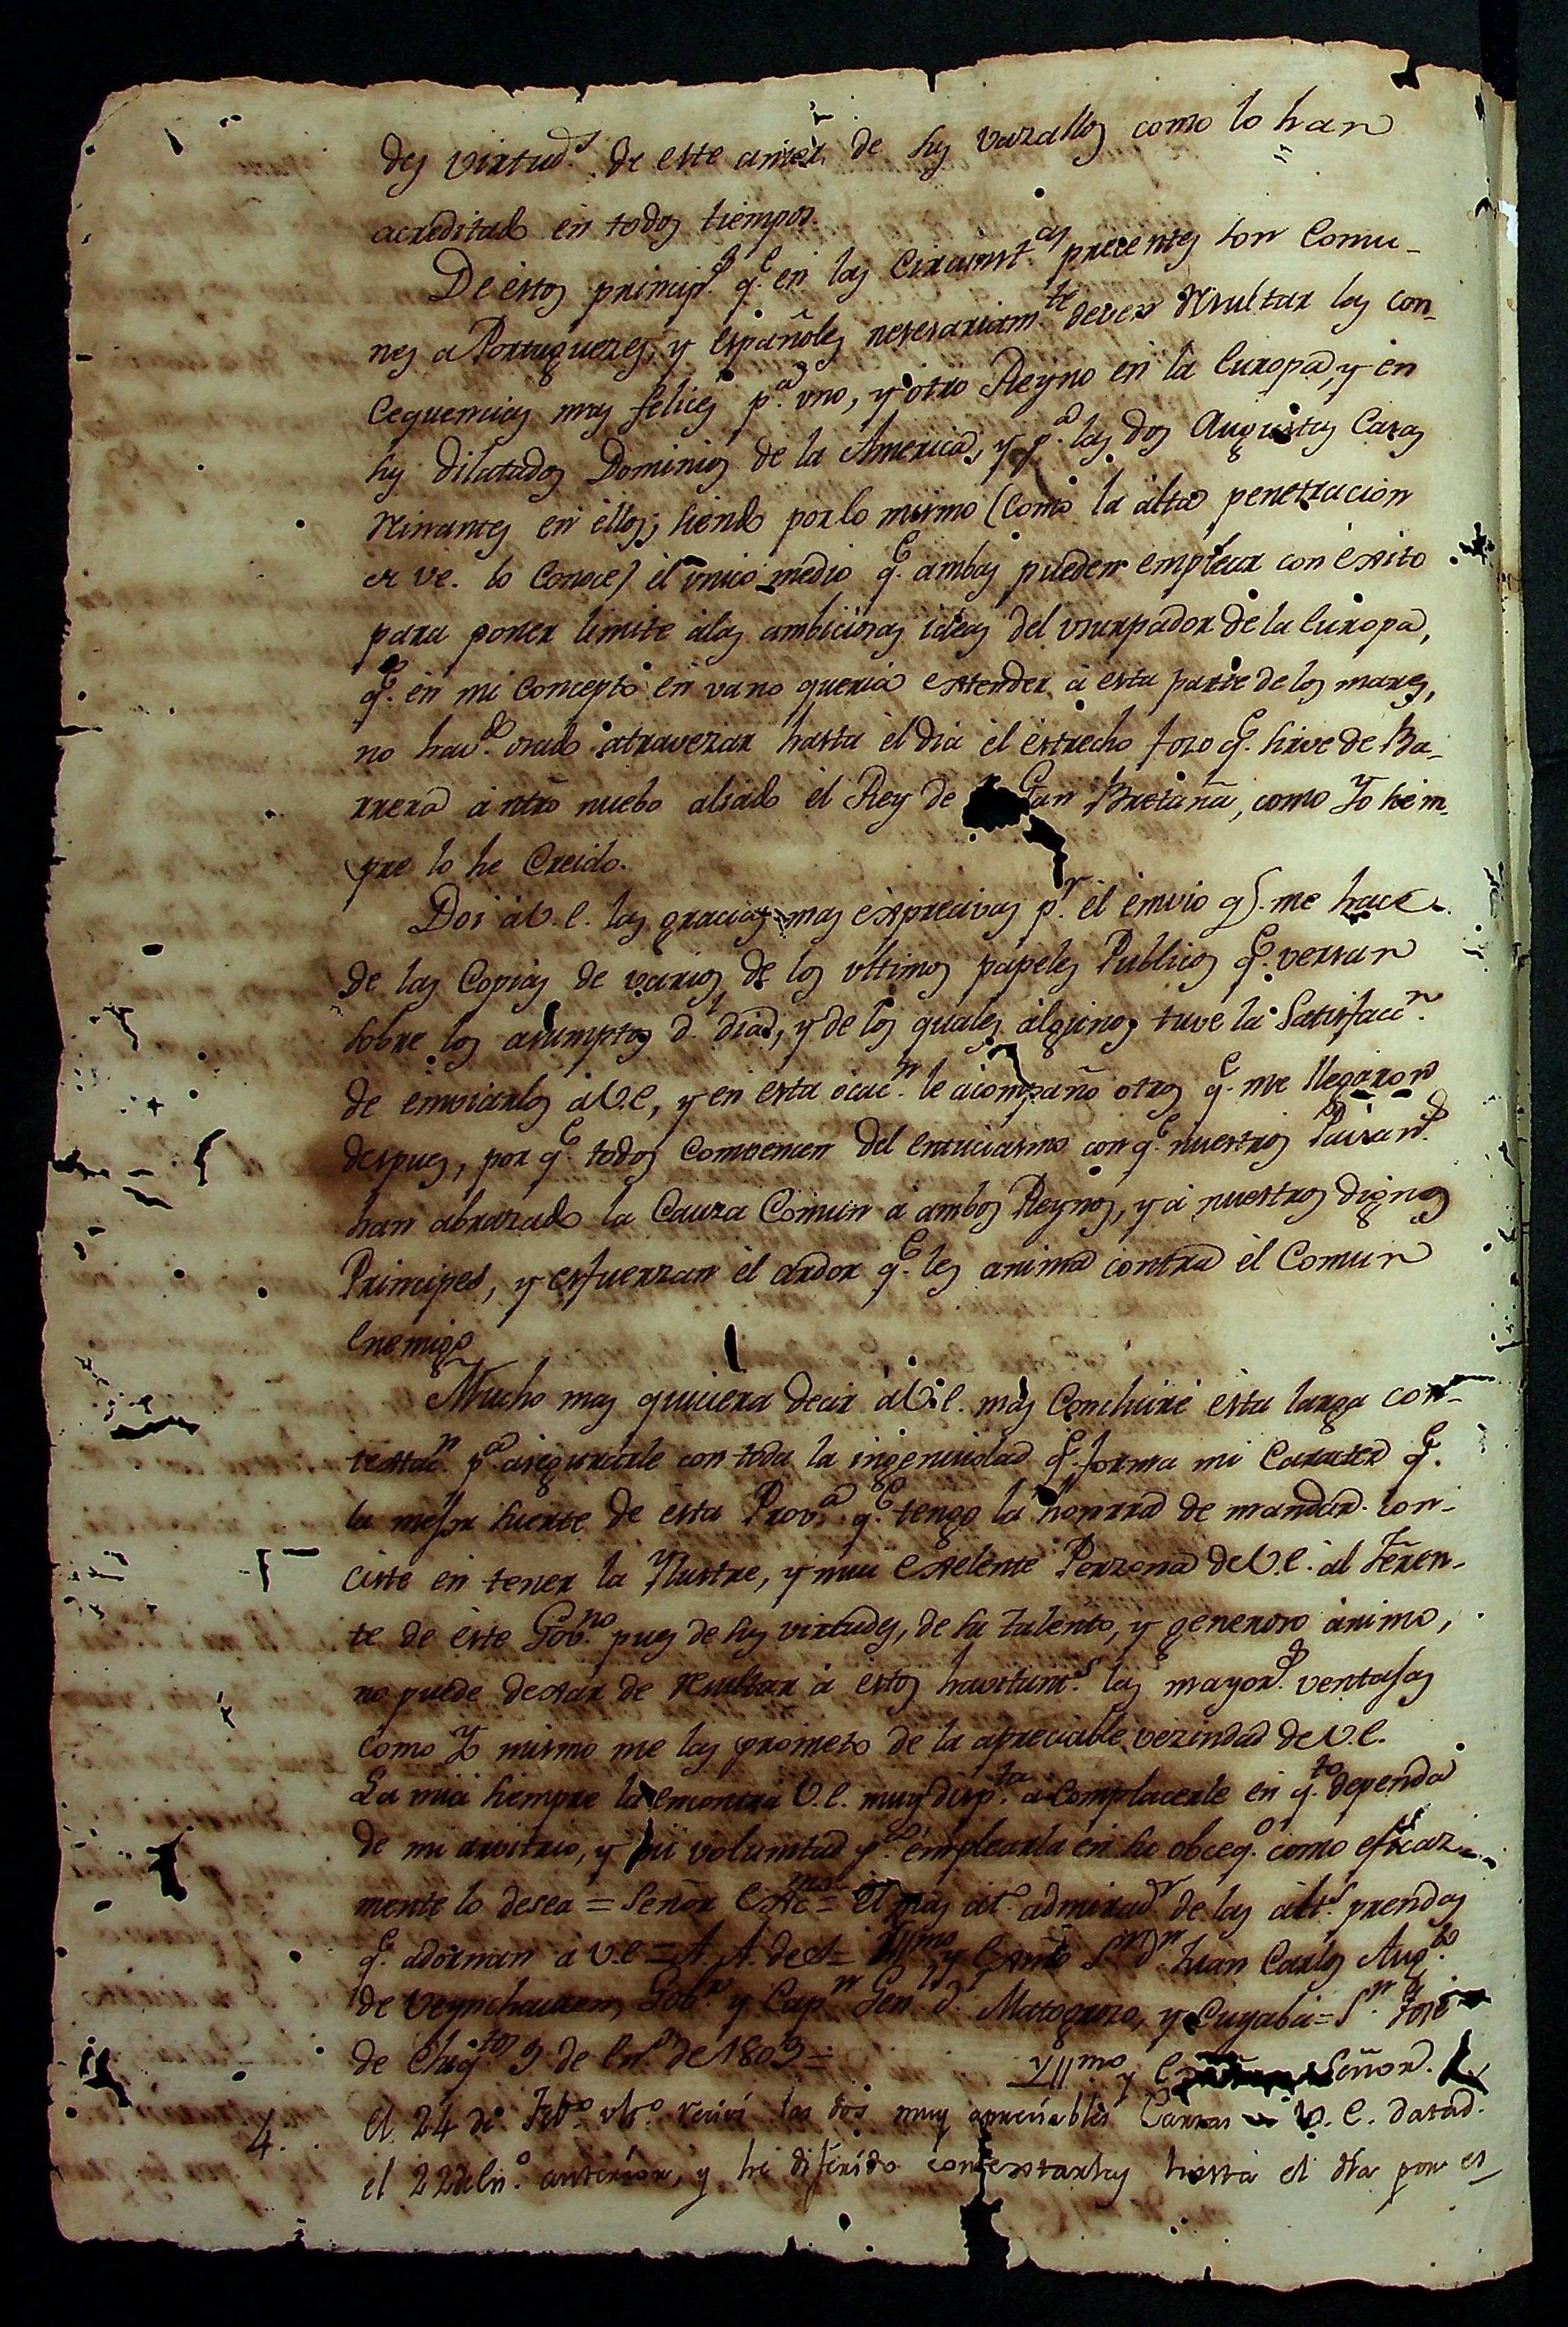 des virtuds. de este amor, de sus vazallos como lo han
acreditado en todos tiempos.
De estos princips. qe. en las Circunstas. precentes son Comu-
nes a Portuguezes, y Españoles nesesariamte. deven resultar las con-
cequencias mas felices pa. uno, y otro Reyno en la Europa, y en
sus dilatados Dominios de la America, y pa. las dos Augustas Casas
reinantes en ellos; siendo por lo mismo (como la alta penetracion
de VE. lo conoce) el unico medio qe. ambas pueden emplear con exito
para poner limite a las ambiciosas ideas del usurpador de la Europa,
qe. en mi concepto en vano queria extender a esta parte de los mares,
no havdo. osado atravezar hasta el dia el estrecho foso qe. sirve de Ba-
rrera a ntro nuebo aliado el Rey de Gran Bretaña, como Yo siem-
pre lo he Creido.
Doi a V.E. las gracias mas expresivas pr. el embio qe. me hace
de las Copias de varios de los ultimos papeles Publicos qe. versan
sobre los asumptos dl. dia, y de los quales algunos tuve la Satisfaccn.
de embiarlos a V.E, y en esta ocacn. le acompaño otros qe. me llegaron
despues, por qe. todos convencen del entuciasmo con qe. nuestros Paisans.
han abrazado la Cauza Comun a ambos Reynos, y a nuestros dignos
Principes, y esfuerzan el ardor qe. les anima contra el Comun
Enemigo
Mucho mas quiciera decir a V.E. mas Concluiré esta larga con-
testacn. pa. asegurarle con toda la ingenuidad qe. forma mi Carater qe.
la mejor suerte de esta Prova. qe. tengo la honrra de mandar con-
ciste en tener la Ylustre, y mui exelente Perzona de V.E. al Fren-
te de este Govno. pues de sus virtudes, de su talento, y generoso animo,
no puede dexar de resultar a estos havitants. las mayors. ventajas
como Yo mismo me las prometo de la apreciable vezindad de V.E.
La mia siempre la encontrá V.E. muy dispta. a complacerle en qto. dependa
de mi arvitrio, y mi voluntad pa. emplearla en su obcego. como eficaz-
mente lo desea = Señor Exmo = El mas at. admirador. de las alts. prendas
qe. adornan a V.E = A. A. de A = Yllmo y Exmo Sr. Dn. Juan Carlos Augto.
de Oeynchausen, Gobr. y Capn. Genl. d. Mattogroso, y Cuyaba = Sn. Jose
de Chiqtos. 9 de Enro. de 1809 =
Yllmo. y Señor.
4. El 24 de Febo. ulto. recivi las dos muy apreciables Cartas V.E. datad.
el 22 de Eno. anterior, y he diferido contextarlas hasta el dia por el